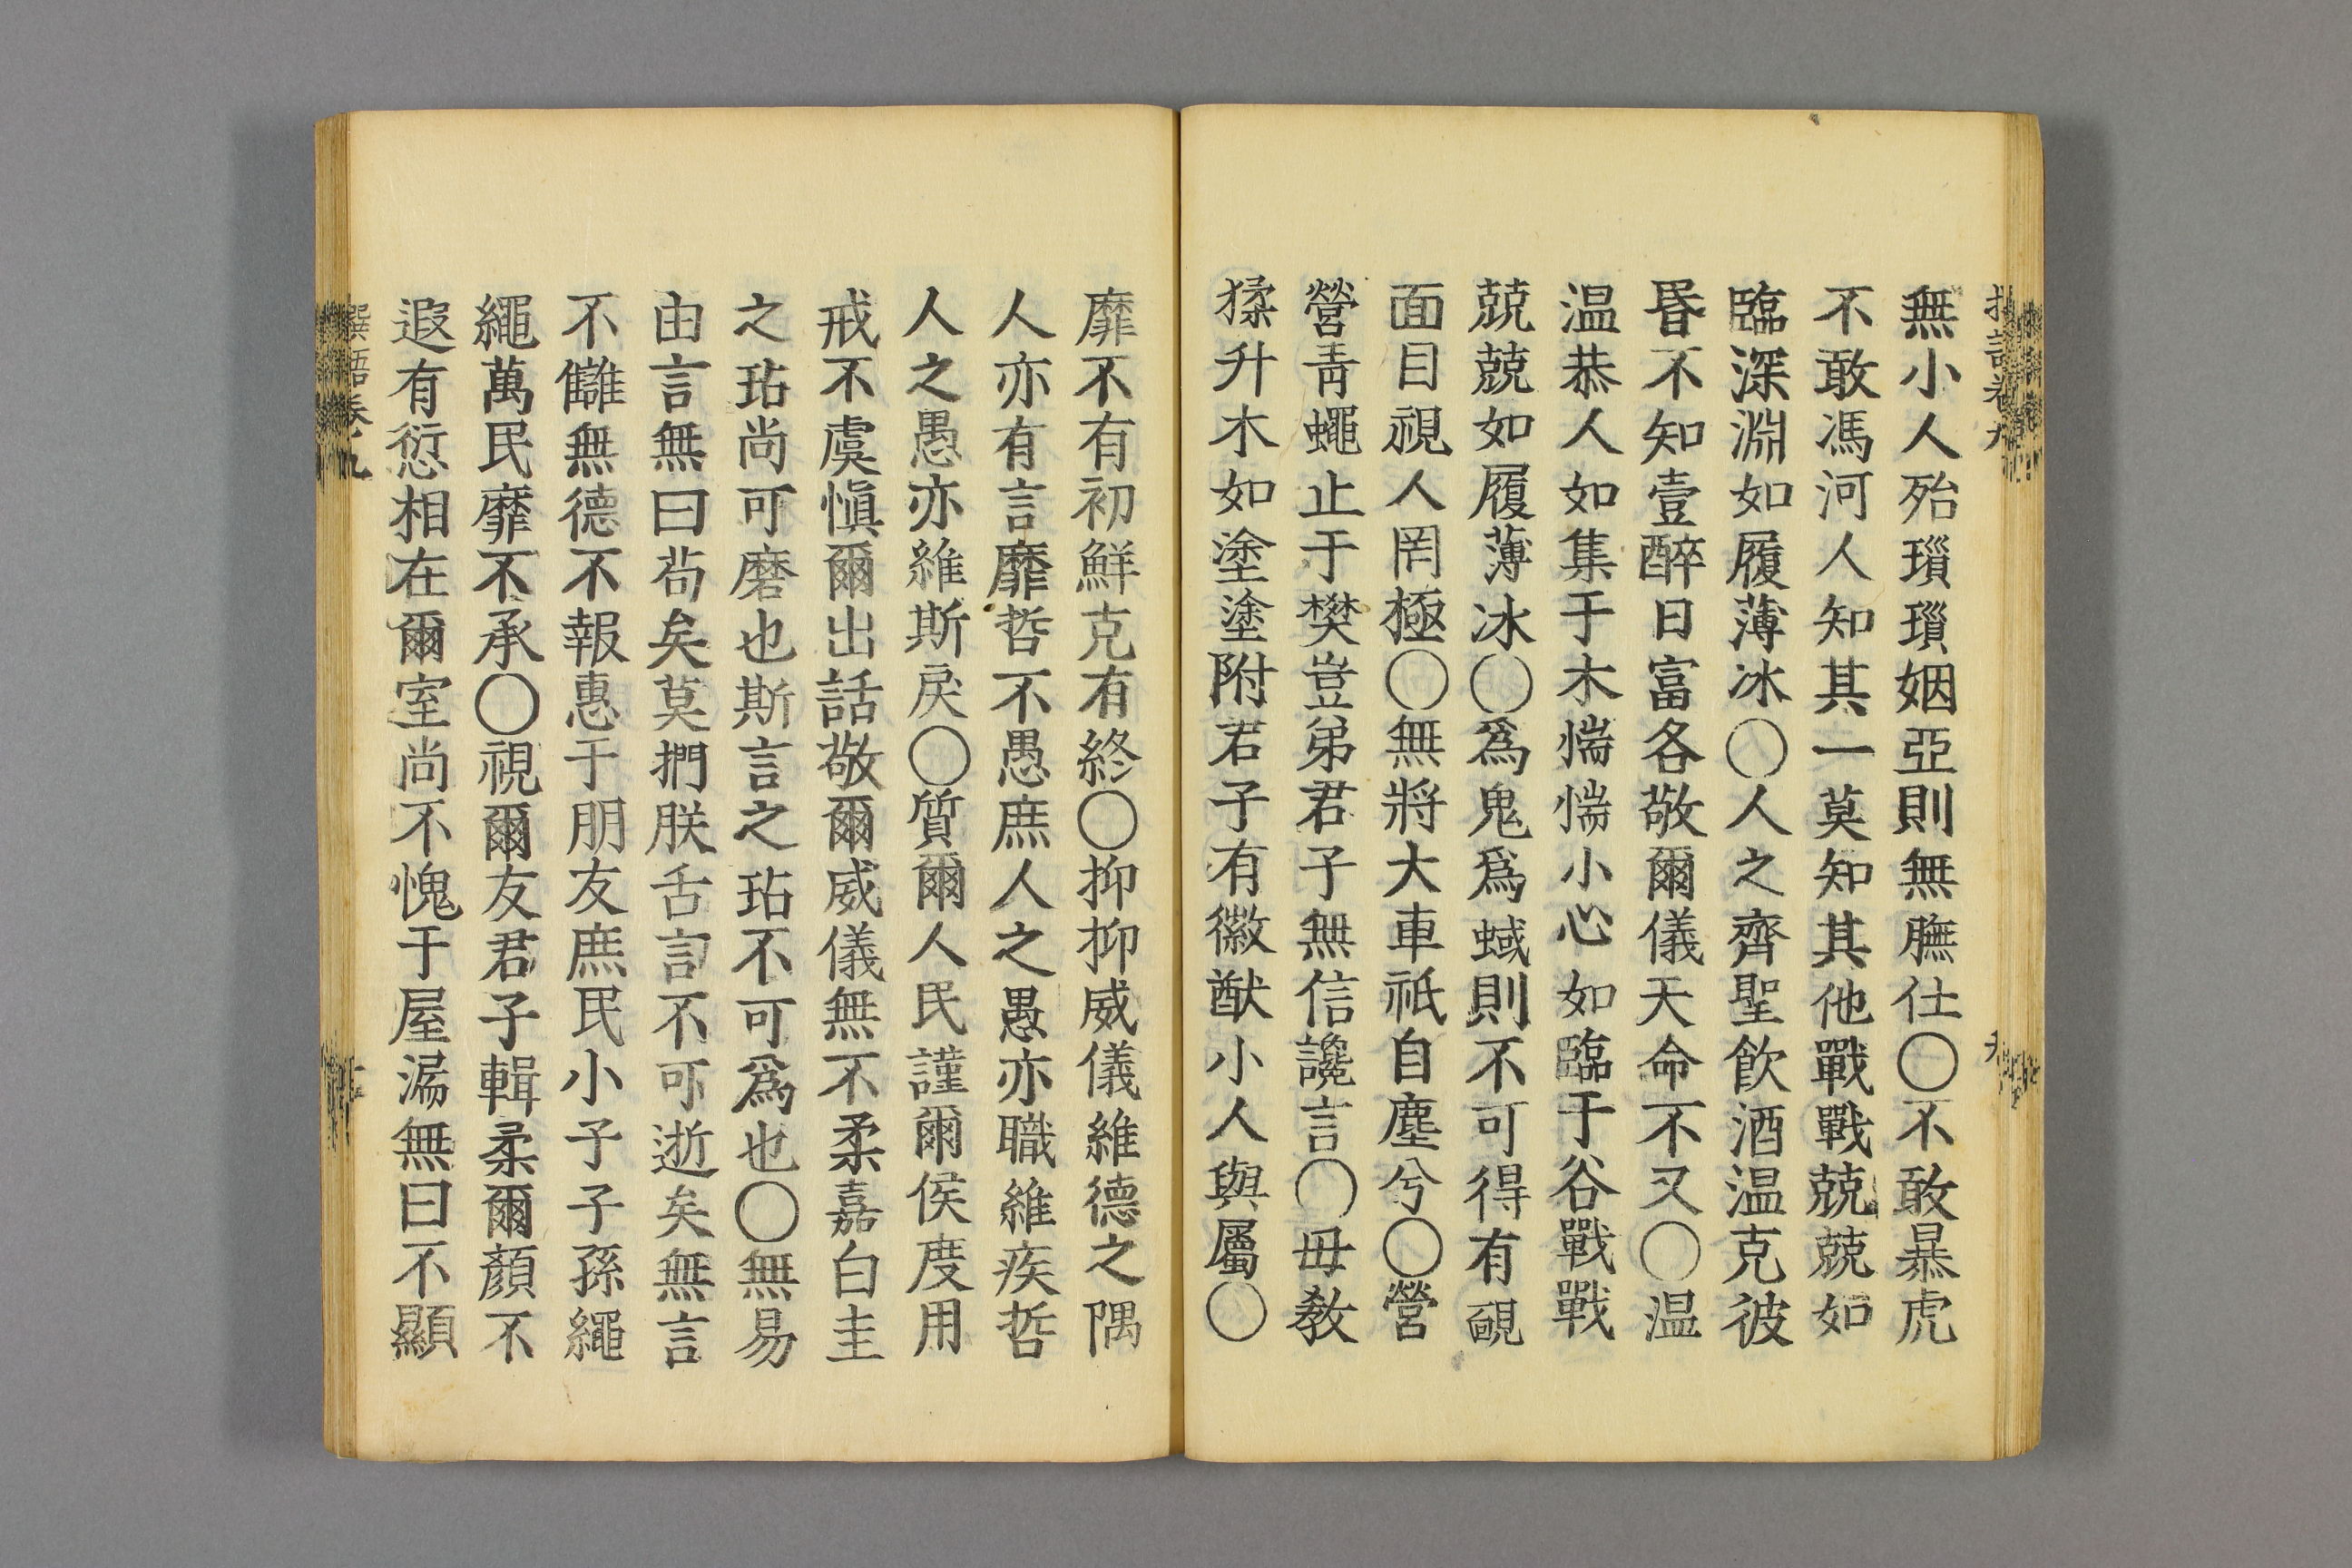 無小人殆瑣瑣姻亞則無膴仕〇不敢暴虎
不敢馮河人知其一莫知其他戰戰兢兢如
臨深淵如履薄冰〇人之齊聖飲酒温克彼
昬不知壹醉日富各敬爾儀天命不又〇温
温恭人如集于木惴惴小心如臨于谷戰戰
兢兢如履薄冰〇爲鬼爲蜮則不可得有靦
面目視人罔極〇無將大車祇自塵兮〇營
營青蠅止于樊豈弟君子無信讒言〇毋敎
猱升木如塗塗附君子有徽猷小人與屬〇
靡不有初鮮克有終〇抑抑威儀維德之隅
人亦有言靡哲不愚庶人之愚亦職維疾哲
人之愚亦維斯戾〇質爾人民謹爾侯度用
戒不虞愼爾出話敬爾威儀無不柔嘉白圭
之玷尚可磨也斯言之玷不可爲也〇無易
由言無曰苟矣莫捫朕舌言不可逝矣無言
不讎無德不報惠于朋友庶民小子子孫繩
繩萬民靡不承〇視爾友君子輯柔爾顏不
遐有愆相在爾室尚不愧于屋漏無曰不顯